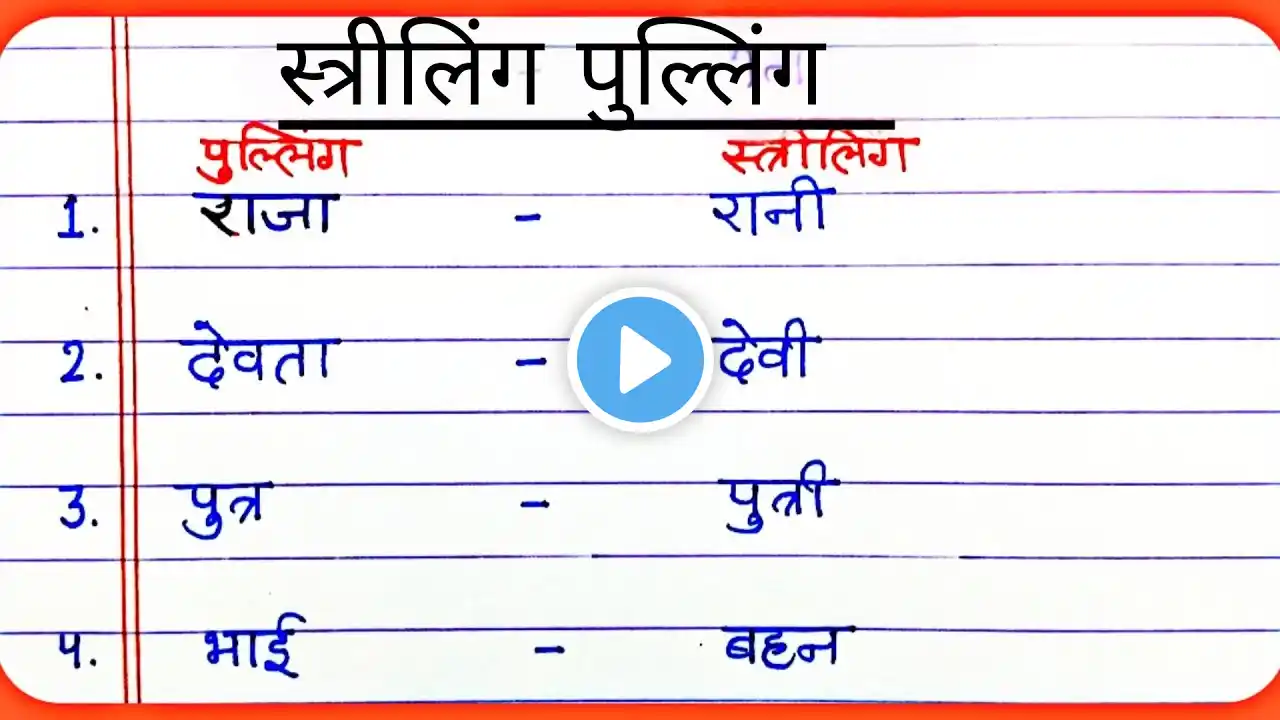 स्त्रीलिंग पुल्लिंग
पुल्लिंग स्त्रीलिंग
1. राजा - रानी
2. देवता - देवी
3. पुत्र - पुत्री
4. भाई - बहन